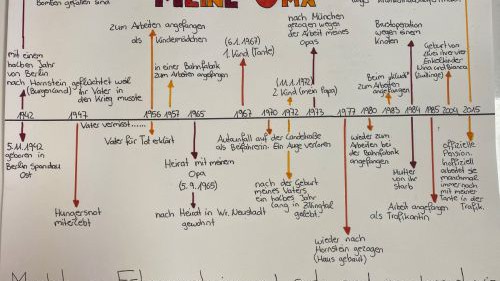 Bomben gefallen sind
MEINE OMA
mit einem
halben Jahr
von Berlin
nach Hornstein geflüchtet weil
(Burgenland) ihr Vater in
den Krieg musste
zum Arbeiten angefangen
als Kindermädchen
in einer Bahnfabrik
zum Arbeiten angefangen
(6.1.1967)
1. Kind (Tante)
nach München
gezogen wegen
der Arbeit meines
Opas
(11.1.1972)
2. Kind (mein Papa)
Brustoperation
wegen einem
Knoten
Beim
zum Arbeiten
angefangen
Geburt von
ihren
Enkelkinder
und Bianca
(Zwillinge)
1942
1947
1956
1957
1965
1967
1970
1972
1973
1977
1980
1983
1984
1985
2004
2015
5.11.1942
geboren in
Berlin Spandau
Ost
Vater vermisst......
Vater für Tot erklärt
Hungersnot
miterlebt
Heirat mit meinem
Opa
(5.9.1965)
nach Heirat in Wr. Neustadt
gewohnt
Autounfall auf der Landstraße
als Beifahrerin. Ein Auge verloren
nach der Geburt
meines Vaters
ein halbes Jahr
lang in Zillingtal
gelebt
wieder nach
Hornstein gezogen
(Haus gebaut)
wieder zum
Arbeiten bei
der Bahnfabrik
angefangen
Mutter
von ihr
starb
Arbeit angefangen
als Trafikantin
offizielle
Pension.
Inoffiziell
arbeitet sie
manchmal
immer noch
mit meiner
Tante in der
Trafik.